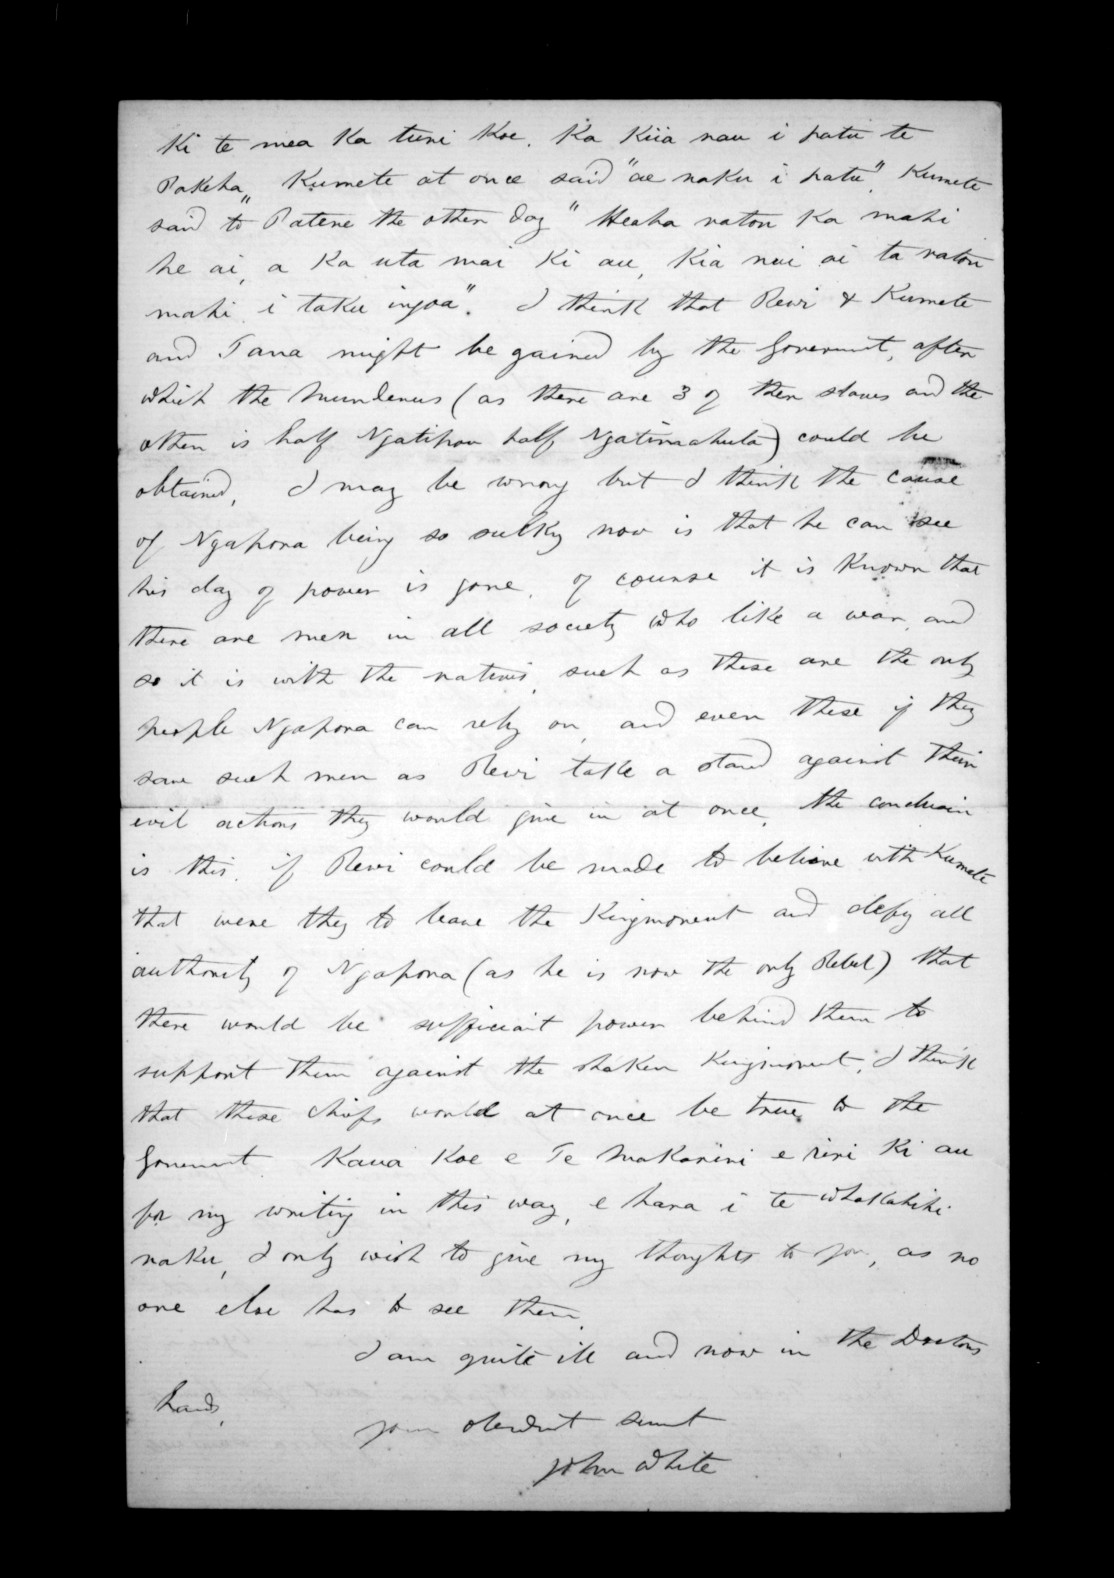 Ki te mea Ka turi Koe. Ka Kiia nau i patu te
Pakeha" Kumete at once said "ae naku i patu". Kumete
said to Patene the other day "Heaha ratou Ka mahi
he ai, a Ka uta mai Ki au, Kia nui ai ta ratou
mahi i taku ingoa". I think that Rewi & Kumete
and Tana might be gained by the Government, after
which the Murderers (as there are 3 of them slaves and the
other is half Ngatipou half Ngatimahuta) could be
obtained, I may be wrong but I think the cause
of Ngapora being so sulky now is that he can see
his day of power is gone. of course it is Known that
there are men in all society who like a war, and
so it is with the natives, such as these are the only
people Ngapora can rely on, and even these if they
saw such men as Rewi take a stand against their
evil actions they would give in at once, the conclusion
is this. if Rewi could be made to believe with Kumete
that were they to leave the Kingmovement and defy all
authority of Ngapora (as he is now the only Rebel) that
there would be sufficient power behind them to
support them against the shaken Kingmovement, I think
that these chiefs would at once be true to the
Government Kaua Koe e Te Makarini e riri Ki au
for my writing in this way, e hara i te whakahihi
naku, I only wish to give my thoughts to you, as no
one else has to see them.
I am quite ill and now in the Doctors
hands,
your obedient servant
John White